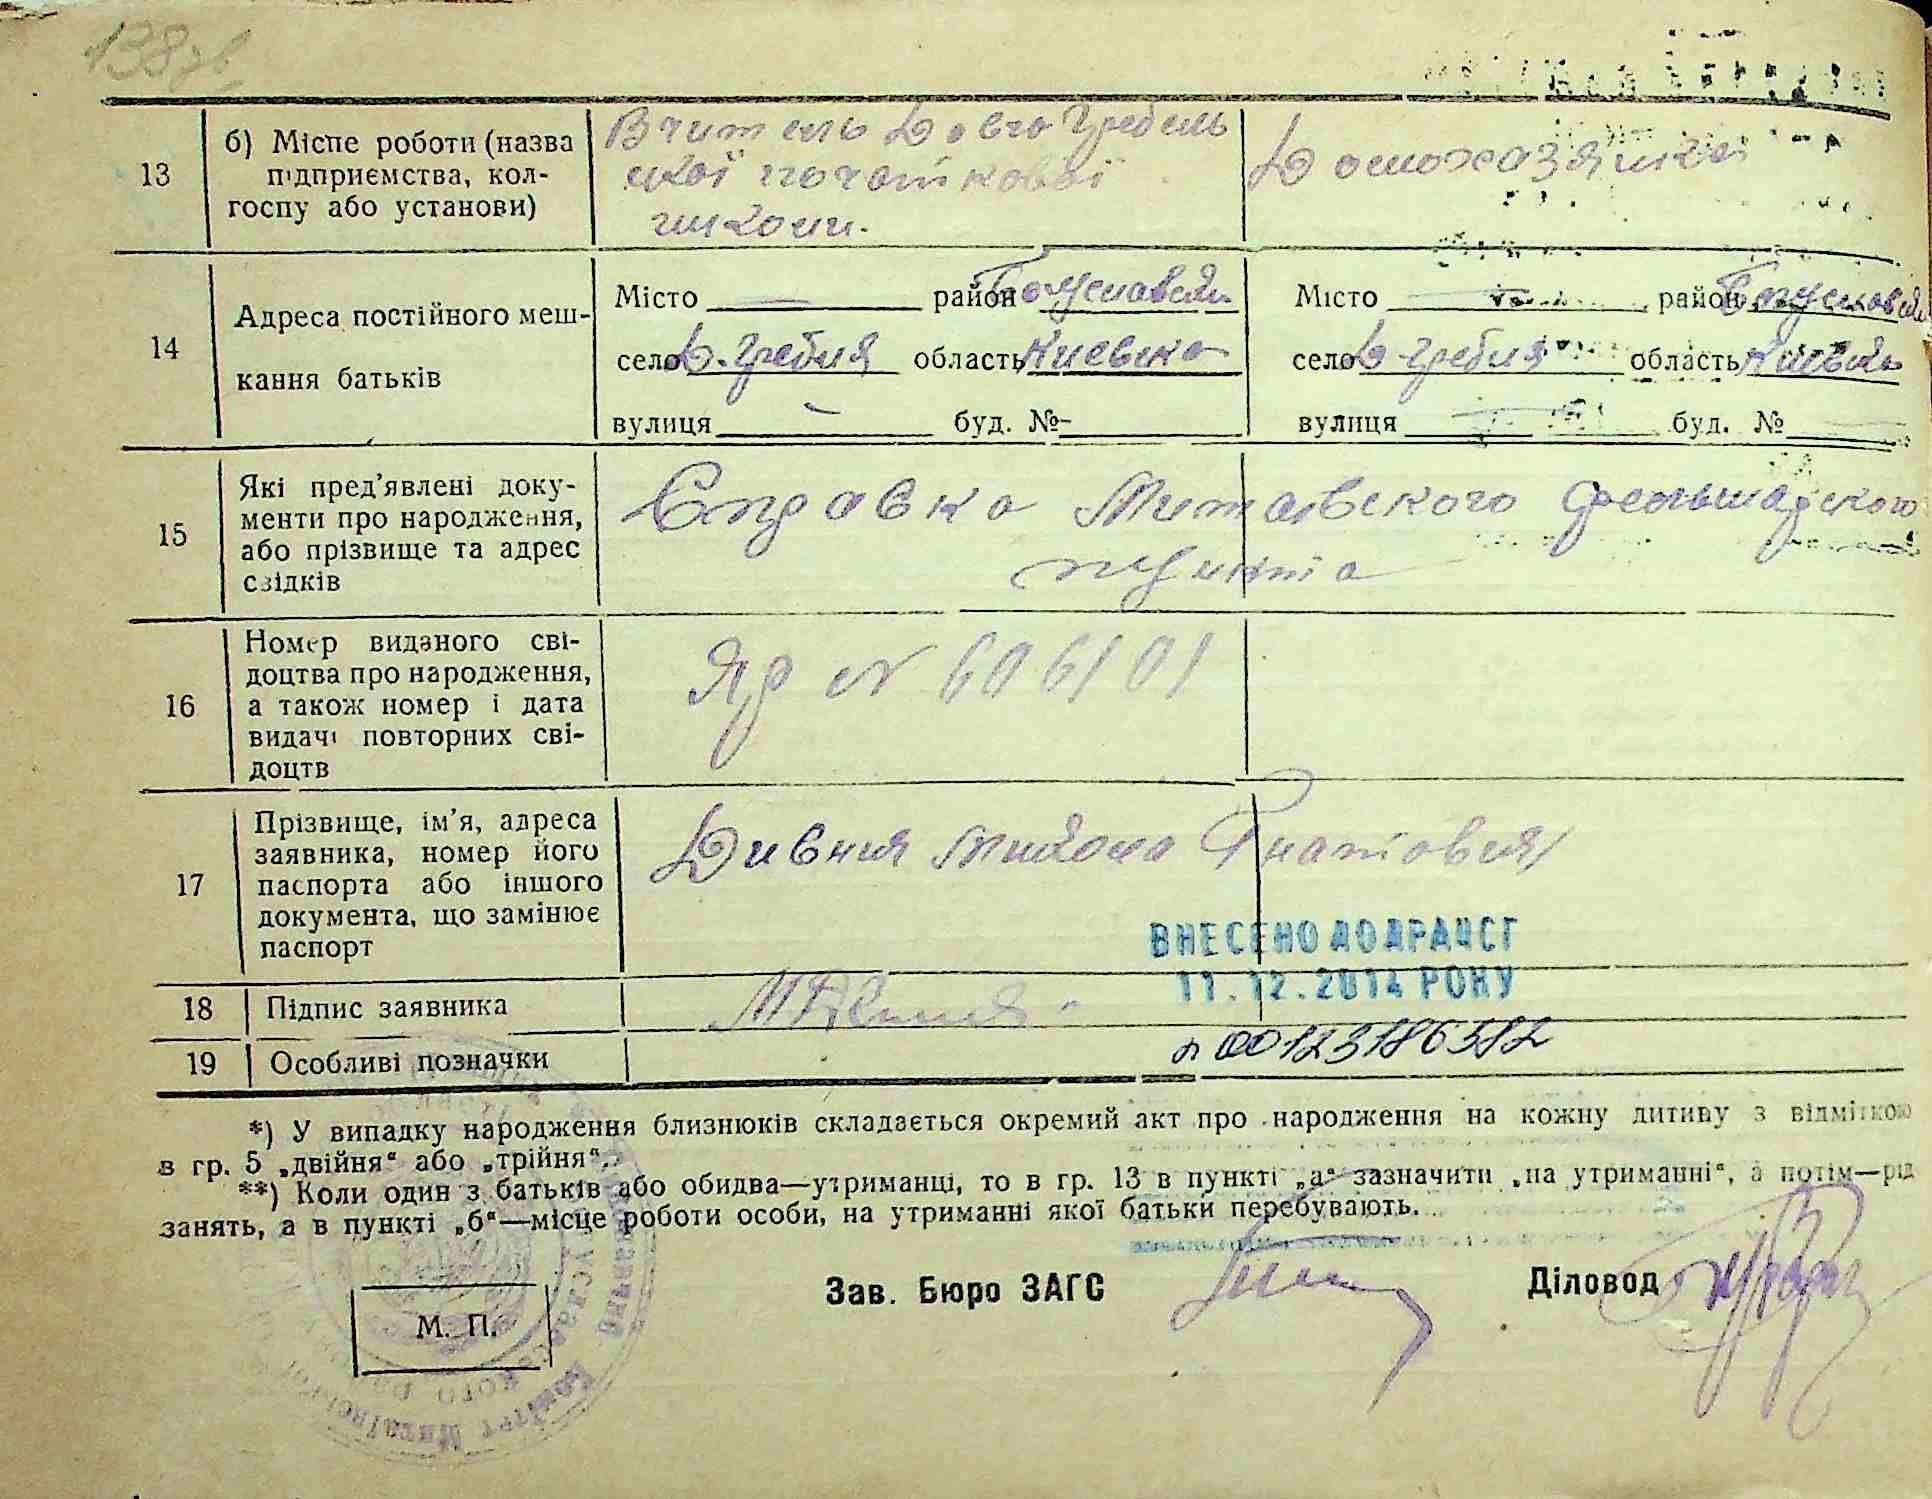 138 зв.
13
б) Місце роботи (назва
підприємства, кол-
госпу або установи)
Вчитель Довгогребель
ської початкової
школи.
Домохазяйка
14
Адреса постійного меш-
кання батьків
Місто район Богуславськ.
село Д. Гребля область Киевска
вулиця буд. №-
Місто район Богуславськ
село Д-Гребля область Киевськ
вулиця буд. №
15
Які пред'явлені доку-
менти про народження,
або прізвище та адрес
свідків
Справка Митаевского фельшарского
пункта
16
Номер виданого сві-
доцтва про народження,
а також номер і дата
видачі повторних сві-
доцтв
ЯР № 606101
17
Прізвище, ім'я, адреса
заявника, номер його
паспорта або іншого
документа, що замінює
паспорт
Дивния Гнатовия
ВНЕСЕНО ДО ДРАЦСГ
11.12.2014 РОКУ
18
Підпис заявника
19
Особливі позначки
00123186582
*) У випадку народження близнюків складається окремий акт про народження на кожну дитину з відміткою
в гр. 5 „двійня“ або „трійня“.
**) Коли один з батьків або обидва—утриманці, то в гр. 13 в пункті „а“ зазначити „на утриманні“, а потім—рід
занять, а в пункті „б“—місце роботи особи, на утриманні якої батьки перебувають.
Зав. Бюро ЗАГС
Діловод
М. П.